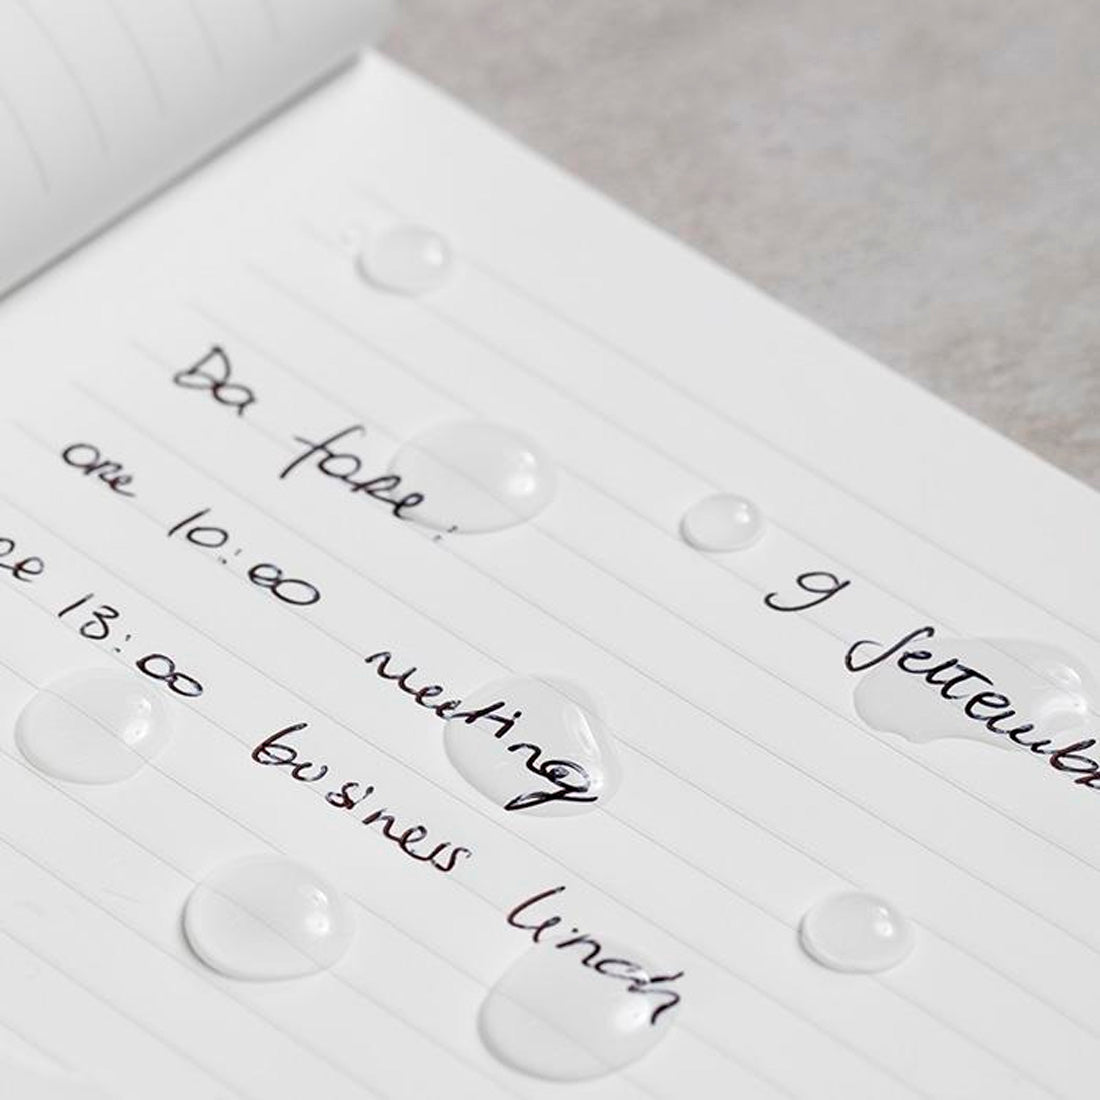 9 settemb
Da fare:
ore 10:00 meeting
re 13:00 business lunch